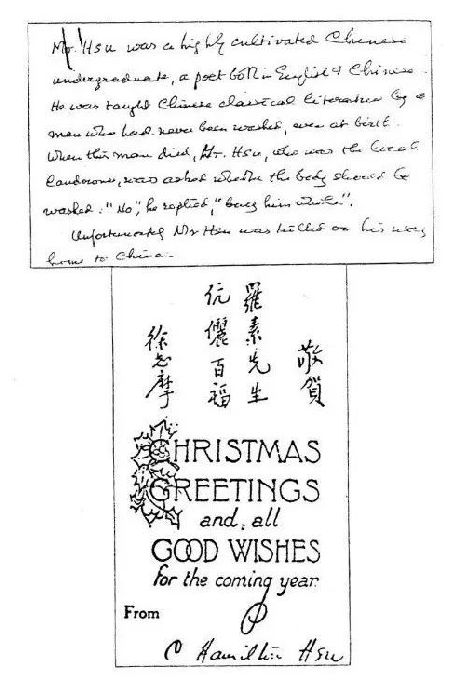 Mr. Hsu was a highly cultivated Chinese
undergraduate, a poet both in English & Chinese.
He was taught Chinese classical literature by a
man who had never been washed, even at birth.
When this man died, Mr. Hsu, who was the local
landowner, was asked whether the body should be
washed. "No", he replied, "bury him whole".
Unfortunately Mr Hsu was killed on his way
home to China.
敬賀
羅素先生
伉儷百福
徐志摩
CHRISTMAS
GREETINGS
and all
GOOD WISHES
for the coming year
From
C Hamilton Hsu